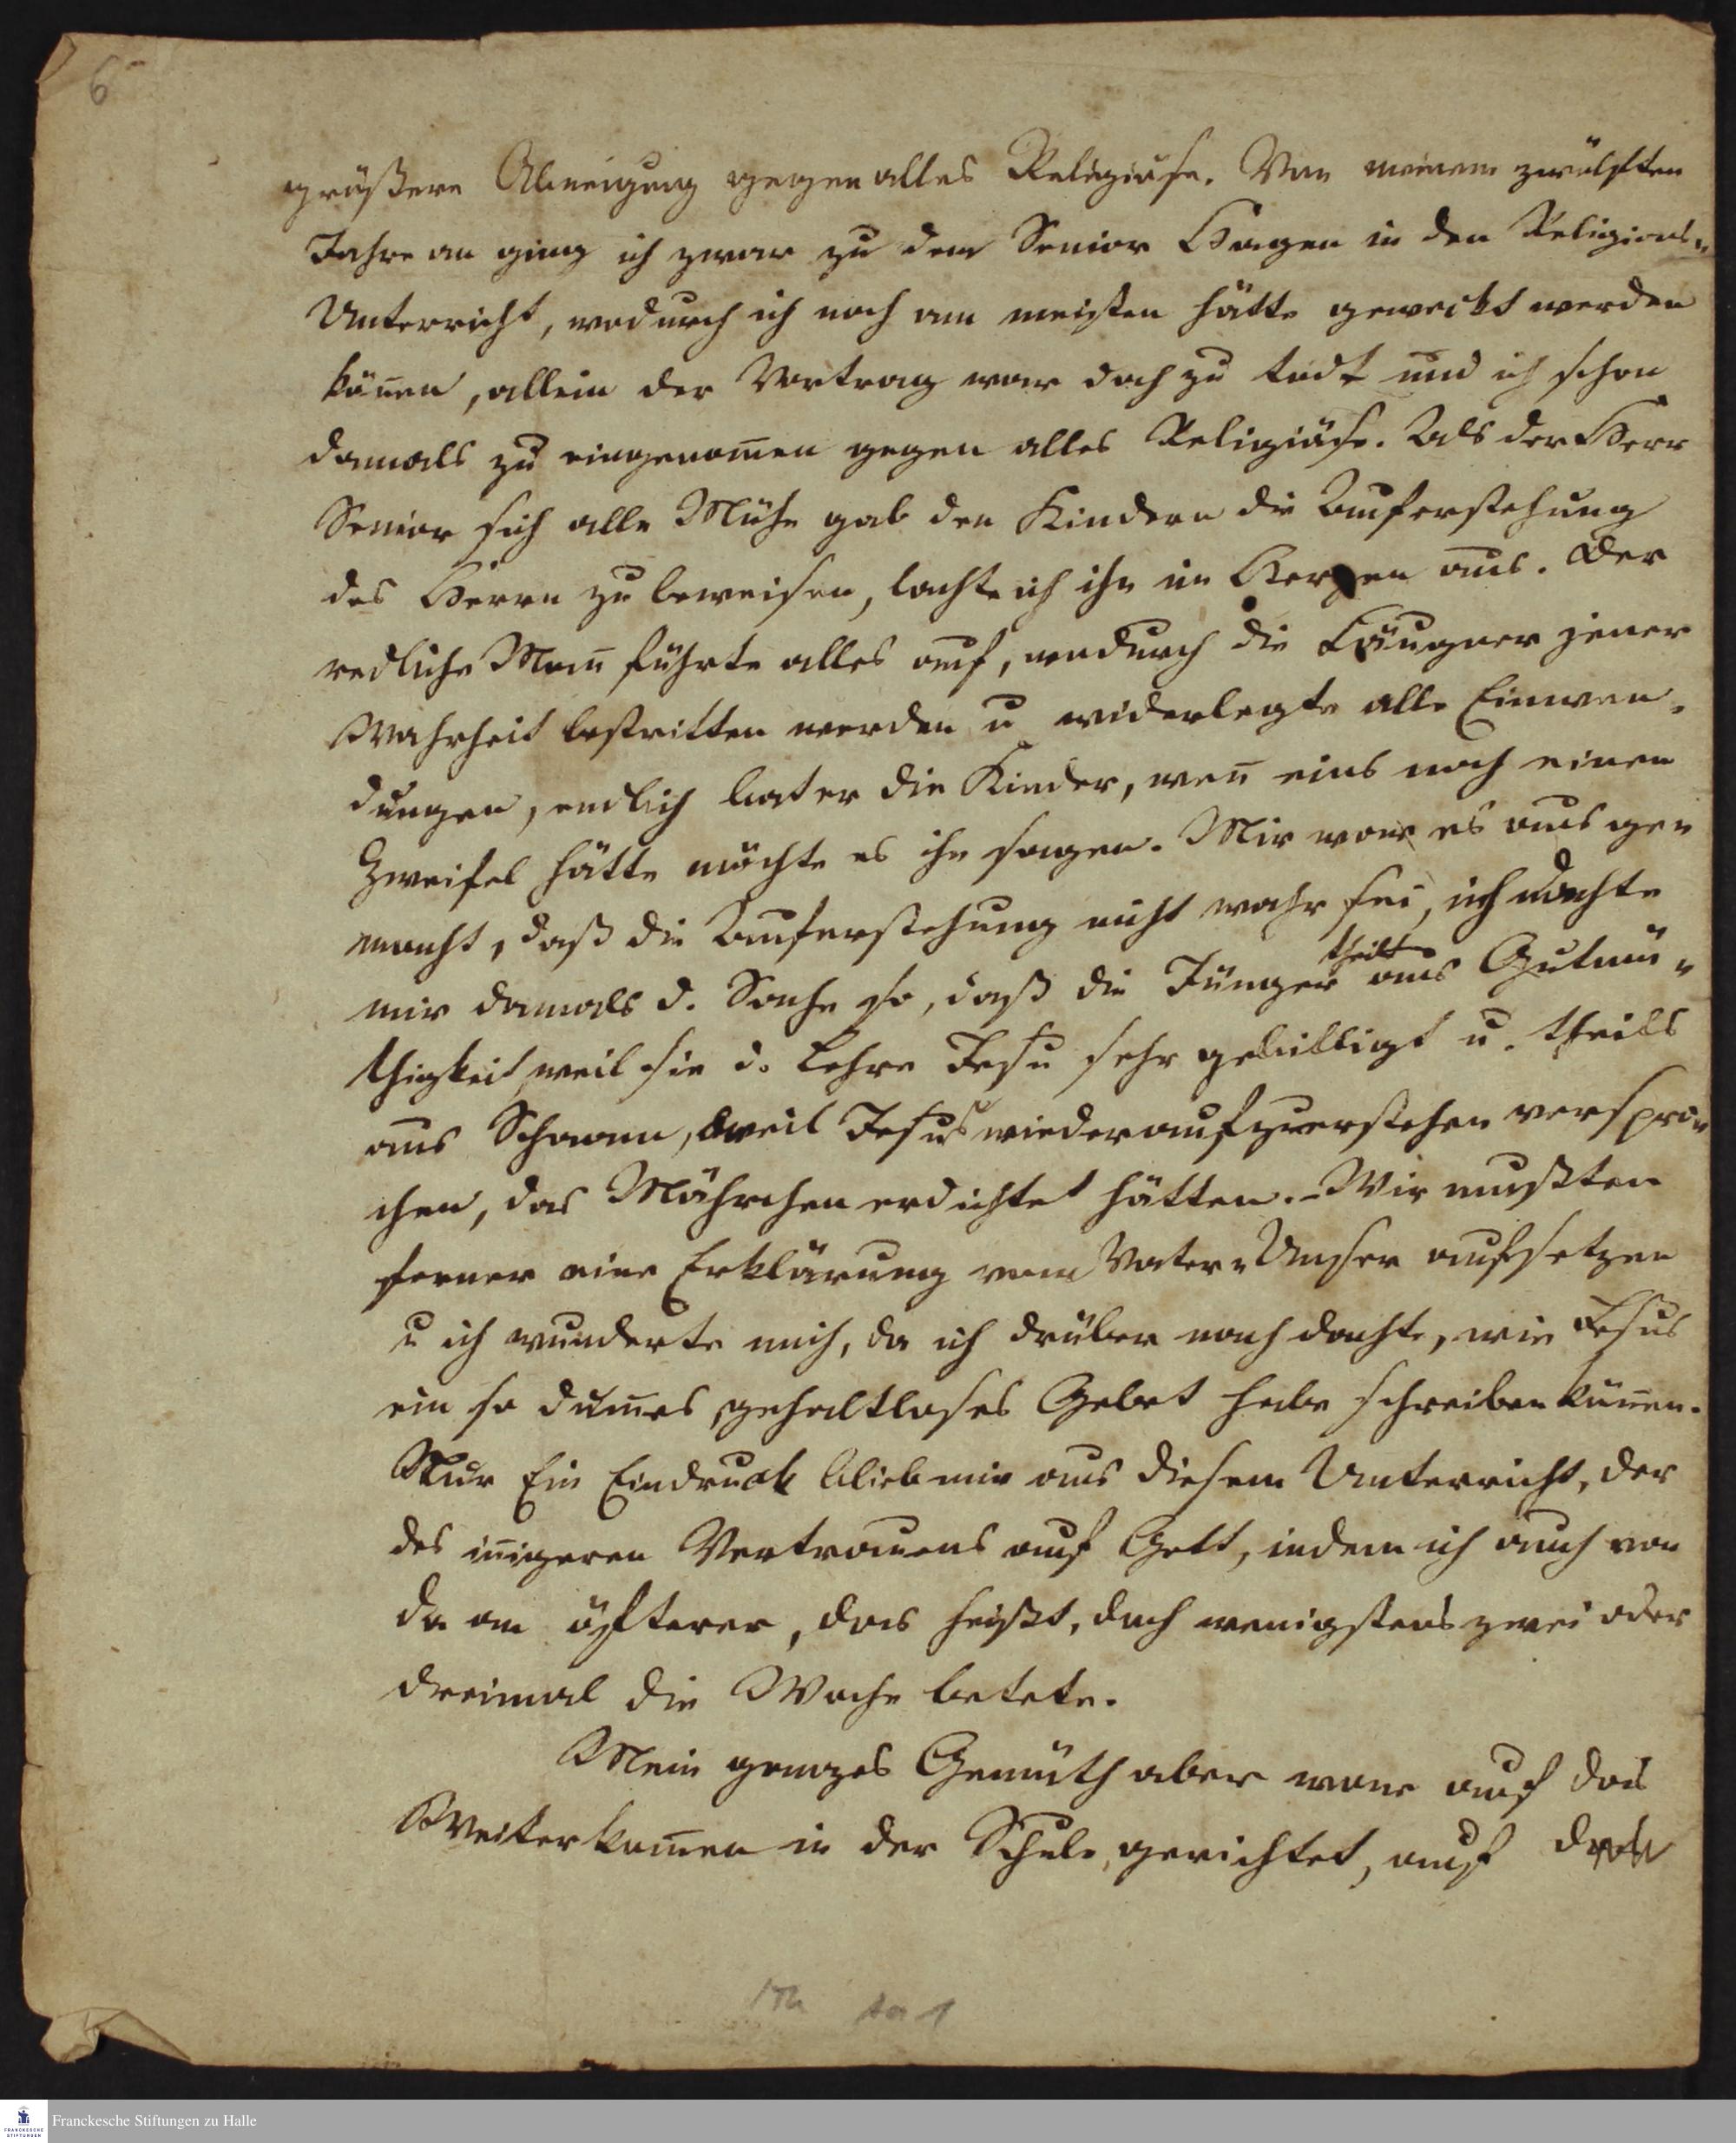 6
größere Abneigung gegen alles Religiöse. Von meinem zwölften
Jahre an ging ich zwar zu dem Senior Hagen in den Religions-
Unterricht, wodurch ich noch am meisten hätte geweckt werden
kön̄en, allein der Vortrag war doch zu todt und ich schon
damals zu eingenom̄en gegen alles Religiöse. Als der Herr
Senior sich alle Mühe gab den Kindern die Auferstehung
des Herrn zu beweisen, lachte ich ihn im Herzen aus. Der
redliche Man̄ führte alles auf, wodurch die Läugner jener
Wahrheit bestritten werden u widerlegte alle Einwen-
dungen, endlich bat er die Kinder, wen̄ eins noch einen
Zweifel hätte möchte es ihn sagen. Mir war es ausge-
macht, daß die Auferstehung nicht wahr sei, ich dachte
mir damals d. Sache so, daß die Jünger theils aus Gutmü-
thigkeit weil sie d. Lehre Jesu sehr gebilligt u. theils
aus Schaam, weil Jesus wiederaufzuerstehen verspro-
chen, das Mährchen erdichtet hätten. - Wir mußten
ferner eine Erklärung vom Vater-Unser aufsetzen
u ich wunderte mich, da ich drüber nach dachte, wie Jesus
ein so dum̄es, gehaltloses Gebet habe schreiben kön̄en.
Nur Ein Eindruck blieb mir aus diesem Unterricht, der
des in̄igeren Vertrauens auf Gott, indem ich auch von
da an öfterer, das heißt, doch wenigstens zwei oder
dreimal die Woche betete.
Mein ganzes Gemüth aber war auf das
Weiterkom̄en in der Schule, gerichtet, auf das
Franckesche Stiftungen zu Halle
FRANCKESCHE
STIFTUNGEN